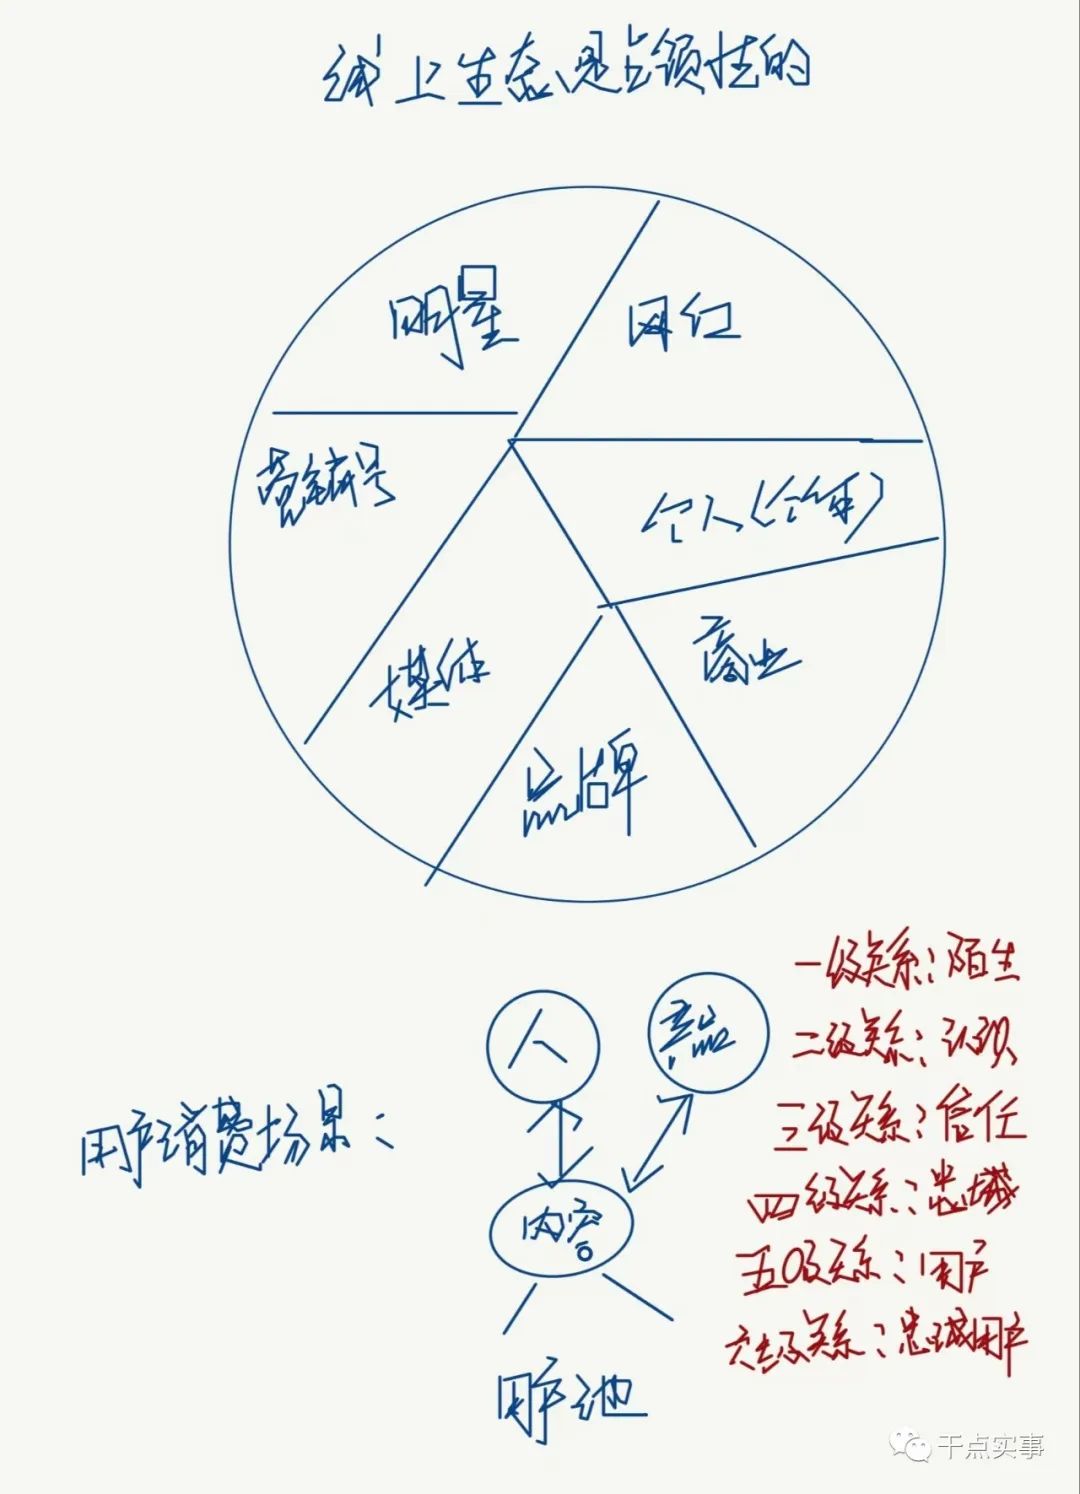 线上生态是占领性的
明星
网红
营销号
个人(合伙)
媒体
商业
品牌
一级关系:陌生
人
产品
二级关系:认识
用户消费场景:
三级关系:信任
四级关系:忠诚
内容
五级关系:用户
六级关系:忠诚用户
用户池
干点实事